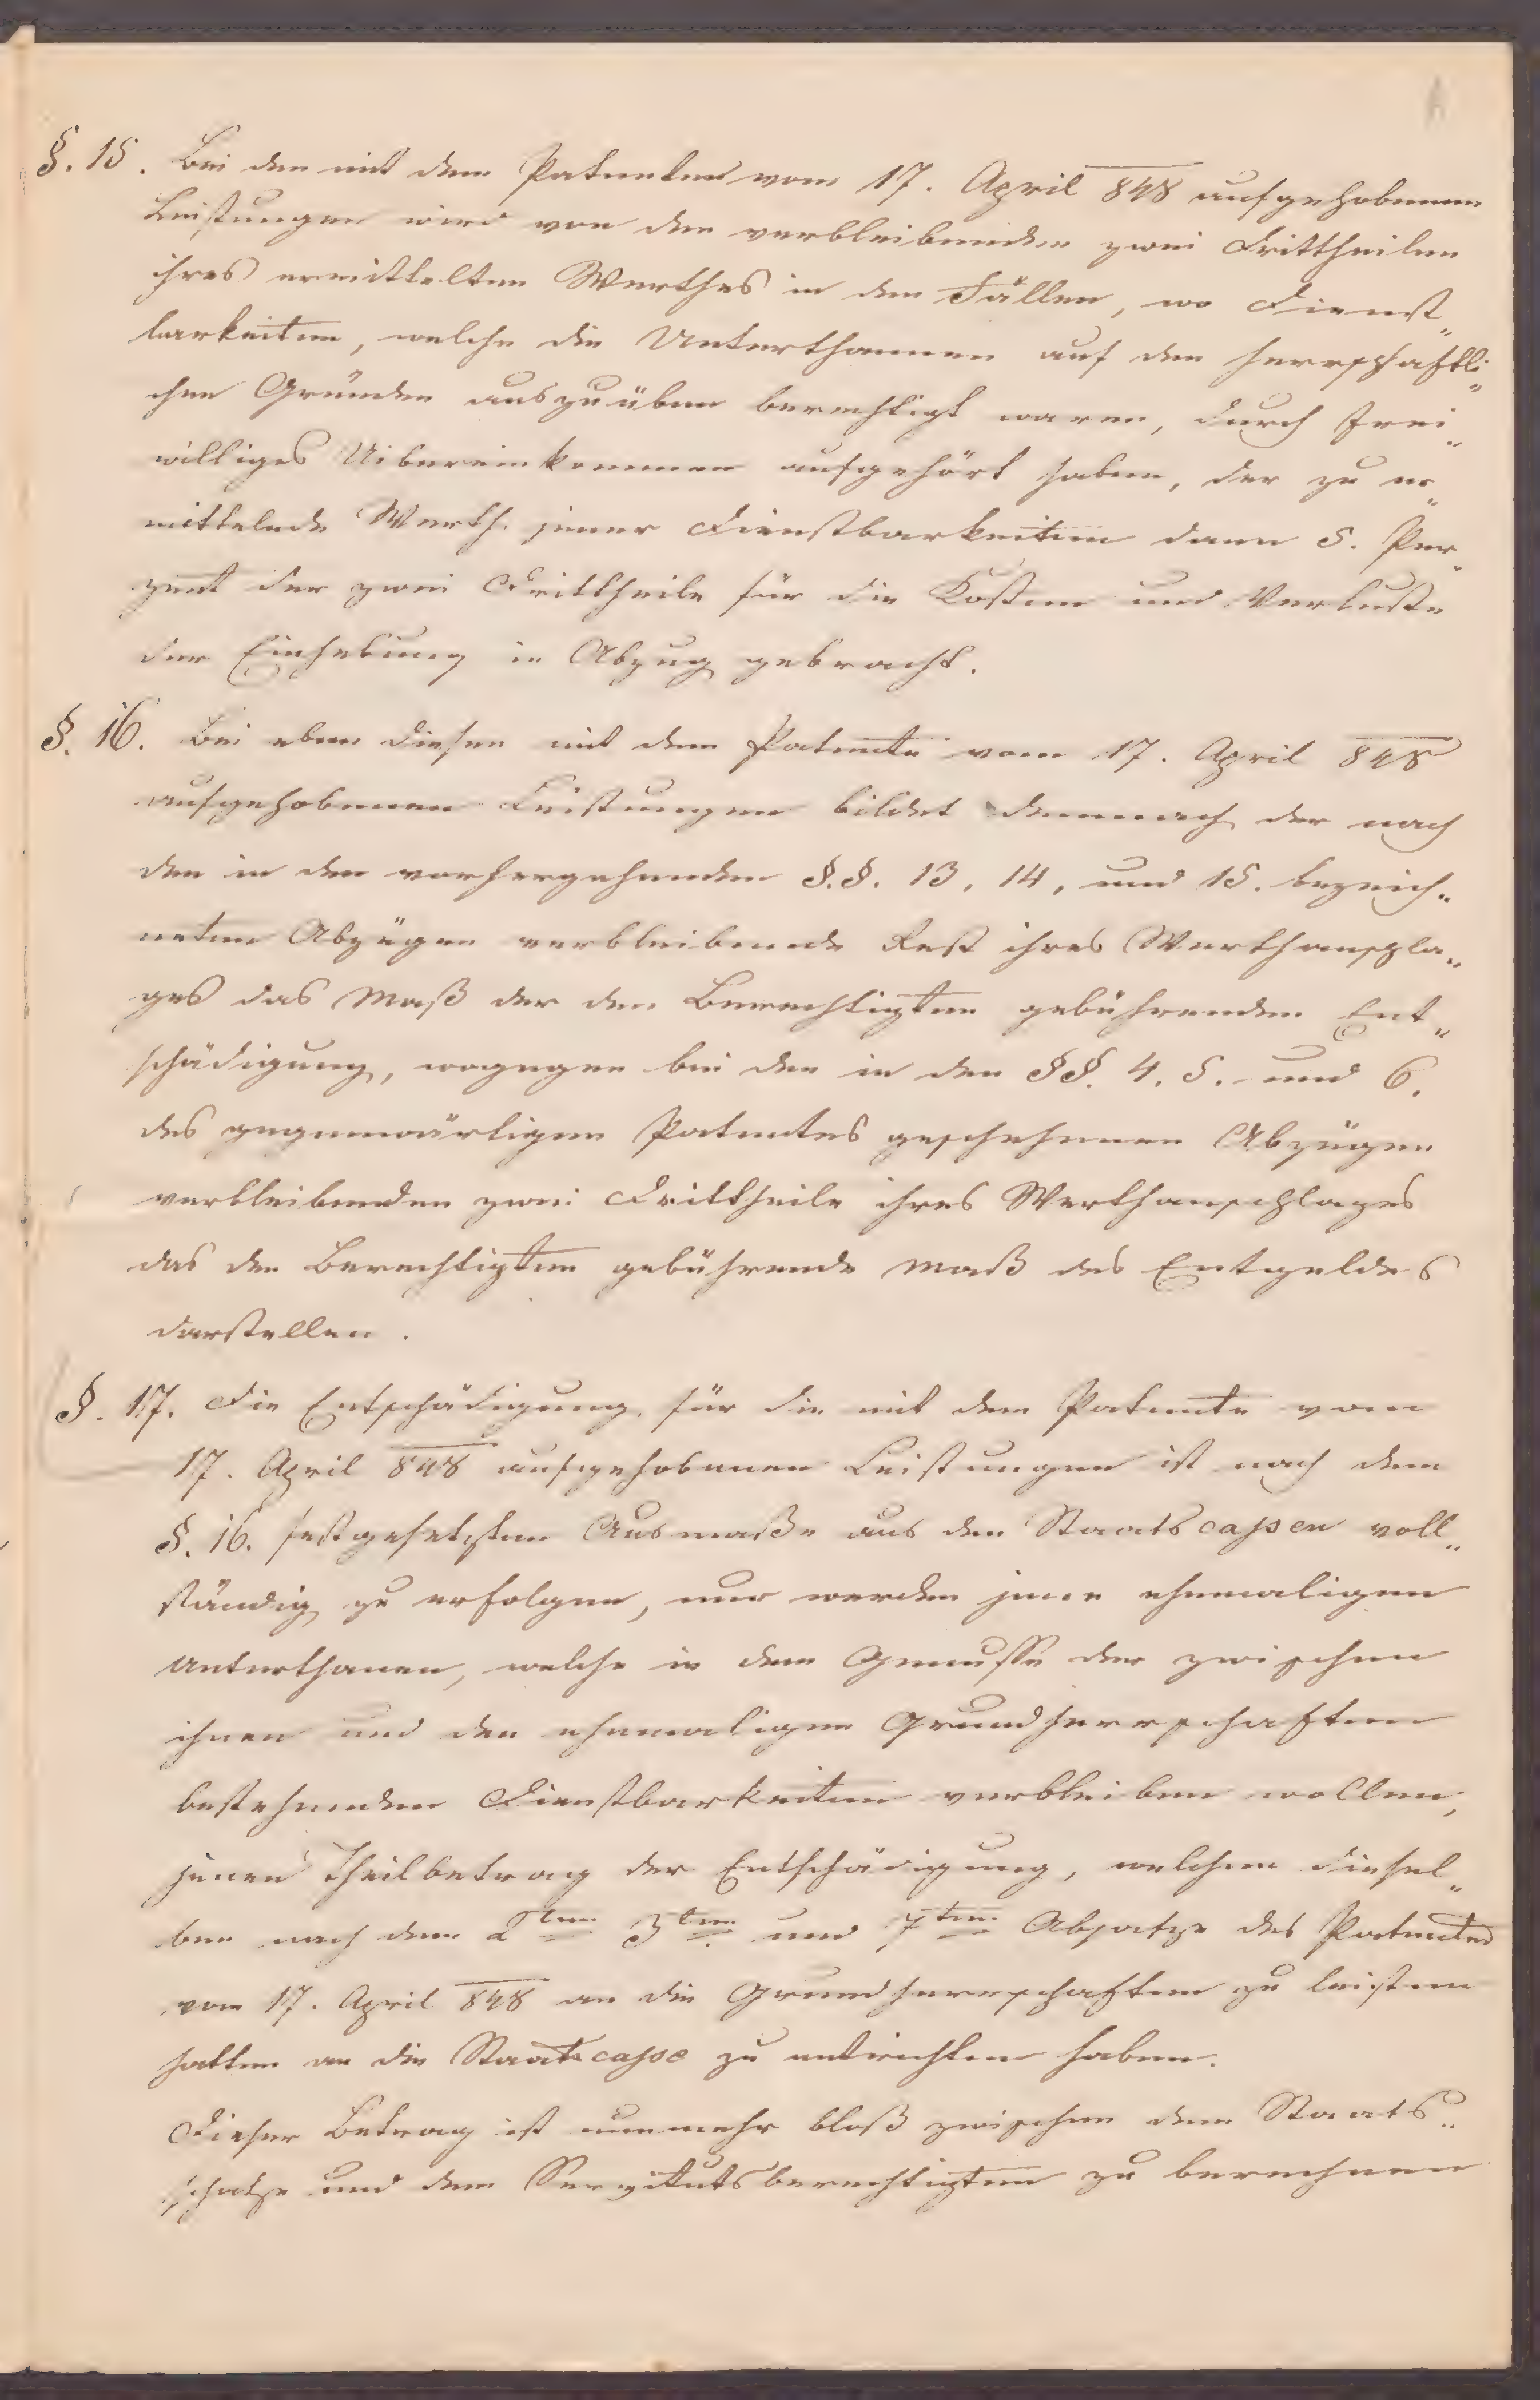 §. 15. Bei den mit dem Patente vom 17. April 848 aufgehobenen
Leistungen wird von den verbleibenden zwei Drittheilen
ihres ermittelten Werthes in den Fällen, wo Dienst„
barkeiten, welche die Unterthannen auf den herrschaftli„
chen Gründen auszuüben berechtigt waren, durch frei„
williges Uibereinkommen aufgehört haben, der zu er„
mittelnde Werth jener Dienstbarkeiten dann 5. Per„
zent der zwei Drittheile für die Kosten und Verluste
der Einhebung in Abzug gebracht.
§. 16. Bei eben diesen mit dem Patente vom 17. April 848
aufgehobenen Leistungen bildet demnach der nach
den in den vorhergehenden §.§. 13, 14, und 15. bezeich„
neten Abzügen verbleibende Rest ihres Werthanschla„
ges das Maß der den Berechtigten gebührenden Ent„
schädigung, wogegen bei den in den §§. 4. 5. und 6.
des gegenwärtigen Patentes geschehenen Abzügen
verbleibenden zwei Drittheile ihres Werthanschlages
das den Berechtigten gebührende Maß des Entgeldes
darstellen.
§. 17. Die Entschädigung für die mit dem Patente vom
17. April 848 aufgehobenen Leistungen ist nach dem
§. 16. festgesetzten Ausmaße aus den Staatscassen voll„
ständig zu erfolgen, nur werden jene ehemaligen
Unterthanen, welche in dem Genusse der zwischen
ihnen und den ehemaligen Grundherrschaften
bestehenden Dienstbarkeiten verbleiben wollen,
jenen Theilbetrag der Entschädigung, welchen diesel„
ben nach dem 2ten 3ten und 7ten Absatze des Patentes
vom 17. April 848 an die Grundherrschaften zu leisten
hatten an die Staatscasse zu entrichten haben.
Dieser Betrag ist nunmehr bloß zwischen dem Staats„
schatze und dem Servitutsberechtigten zu berechnen